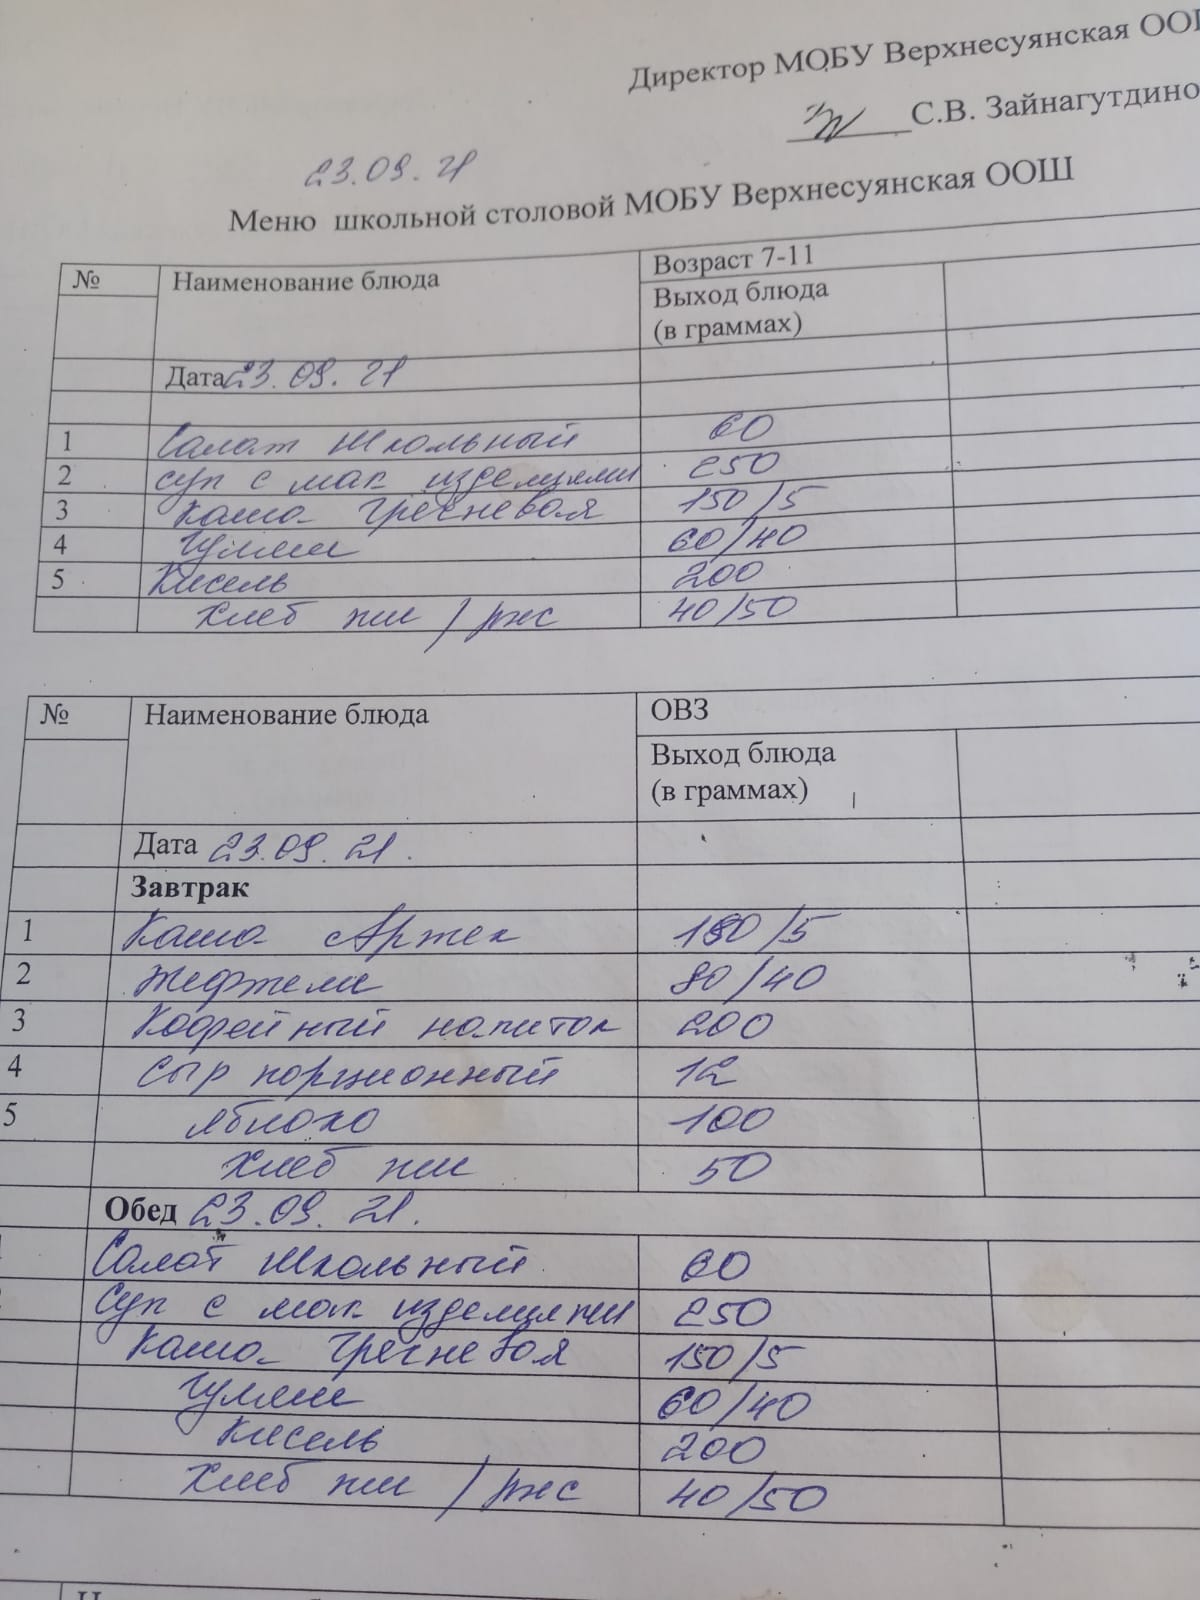 Директор МОБУ Верхнесуянская ООШ
С.В. Зайнагутдино
23.09.21
Меню школьной столовой МОБУ Верхнесуянская ООШ
№ Наименование блюда Возраст 7-11
Выход блюда
(в граммах)
Дата 23.09.21
1 Салат Школьный 60
2 суп с мак изделиями 250
3 Каша гречневая 150/5
4 Гуляш 60/40
5 Кисель 200
Хлеб пш / рж 40/50
№ Наименование блюда ОВЗ
Выход блюда
(в граммах)
Дата 23.09.21.
Завтрак
1 Каша Артек 180/5
2 Тефтели 80/40
3 Кофейный напиток 200
4 Сыр порционный 12
5 яблоко 100
Хлеб пш 50
Обед 23.09.21.
Салат Школьный 60
Суп с мак изделиями 250
Каша Гречневая 150/5
Гуляш 60/40
Кисель 200
Хлеб пш / рж 40/50